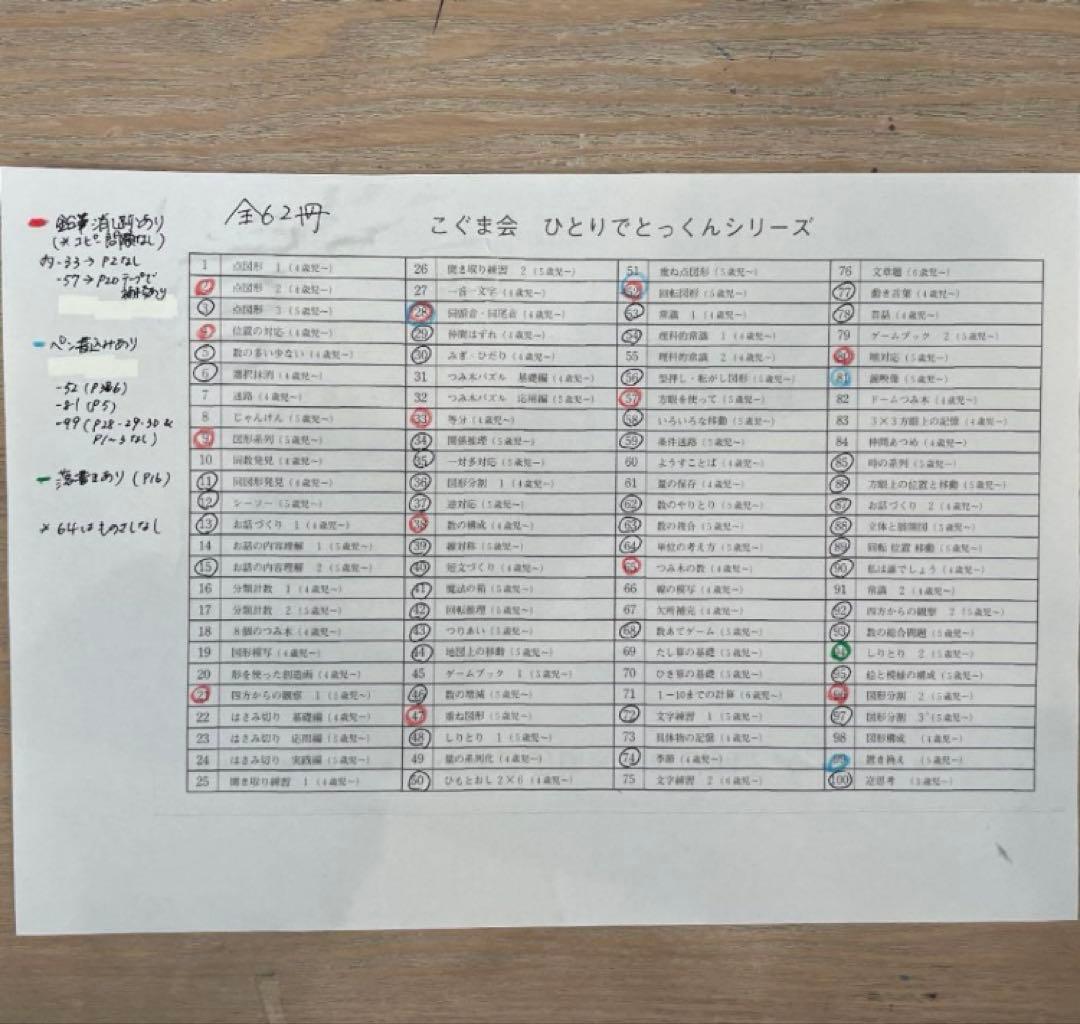 全62冊
こぐま会 ひとりでとっくんシリーズ
鉛筆消し跡あり
(※コピー問題なし)
内-33→P2なし
-57→P20テープで
補修あり
ペン書込みあり
-52(P36)
-81(P5)
-99(P28-29-30&
P1~3なし)
落書きあり(P16)
※64はものさしなし
1 点図形 1(4歳児~)
2 点図形 2(4歳児~)
3 点図形 3(5歳児~)
4 位置の対応(4歳児~)
5 数の多い少ない(4歳児~)
6 選択抹消(4歳児~)
7 迷路(4歳児~)
8 じゃんけん(5歳児~)
9 図形系列(5歳児~)
10 同数発見(4歳児~)
11 同図形発見(4歳児~)
12 シーソー(5歳児~)
13 お話づくり 1(4歳児~)
14 お話の内容理解 1(5歳児~)
15 お話の内容理解 2(5歳児~)
16 分類計数 1(4歳児~)
17 分類計数 2(5歳児~)
18 8個のつみ木(4歳児~)
19 図形模写(4歳児~)
20 形を使った創造画(4歳児~)
21 四方からの観察 1(5歳児~)
22 はさみ切り 基礎編(4歳児~)
23 はさみ切り 応用編(5歳児~)
24 はさみ切り 実践編(5歳児~)
25 聞き取り練習 1(4歳児~)
26 聞き取り練習 2(5歳児~)
27 一音一文字(4歳児~)
28 同頭音・同尾音(4歳児~)
29 仲間はずれ(4歳児~)
30 みぎ・ひだり(4歳児~)
31 つみ木パズル 基礎編(4歳児~)
32 つみ木パズル 応用編(5歳児~)
33 等分(4歳児~)
34 関係推理(5歳児~)
35 一対多対応(5歳児~)
36 図形分割 1(4歳児~)
37 逆対応(5歳児~)
38 数の構成(4歳児~)
39 線対称(5歳児~)
40 短文づくり(4歳児~)
41 魔法の箱(5歳児~)
42 回転推理(5歳児~)
43 つりあい(5歳児~)
44 地図上の移動(5歳児~)
45 ゲームブック 1(5歳児~)
46 数の増減(5歳児~)
47 重ね図形(5歳児~)
48 しりとり 1(5歳児~)
49 量の系列化(4歳児~)
50 ひもとおし2×6(4歳児~)
51 重ね点図形(5歳児~)
52 回転図形(5歳児~)
53 常識 1(4歳児~)
54 理科的常識 1(4歳児~)
55 理科的常識 2(4歳児~)
56 型押し・転がし図形(5歳児~)
57 方眼を使って(5歳児~)
58 いろいろな移動(5歳児~)
59 条件迷路(5歳児~)
60 ようすことば(4歳児~)
61 量の保存(4歳児~)
62 数のやりとり(5歳児~)
63 数の複合(5歳児~)
64 単位の考え方(5歳児~)
65 つみ木の数(4歳児~)
66 線の模写(4歳児~)
67 欠所補完(4歳児~)
68 数あてゲーム(5歳児~)
69 たし算の基礎(5歳児~)
70 ひき算の基礎(5歳児~)
71 1-10までの計算(6歳児~)
72 文字練習 1(5歳児~)
73 具体物の記憶(4歳児~)
74 季節(4歳児~)
75 文字練習 2(6歳児~)
76 文章題(6歳児~)
77 動き言葉(4歳児~)
78 昔話(4歳児~)
79 ゲームブック 2(5歳児~)
80 対応(5歳児~)
81 鏡映像(5歳児~)
82 ドームつみ木(4歳児~)
83 3×3方眼上の記憶(4歳児~)
84 仲間あつめ(4歳児~)
85 時の系列(5歳児~)
86 方眼上の位置と移動(5歳児~)
87 お話づくり 2(4歳児~)
88 立体と展開図(5歳児~)
89 回転 位置 移動(5歳児~)
90 私は誰でしょう(4歳児~)
91 常識 2(4歳児~)
92 四方からの観察 2(5歳児~)
93 数の総合問題(5歳児~)
94 しりとり 2(5歳児~)
95 絵と模様の構成(5歳児~)
96 図形分割 2(5歳児~)
97 図形分割 3(5歳児~)
98 図形構成 (4歳児~)
99 置き換え (5歳児~)
100 逆思考 (5歳児~)